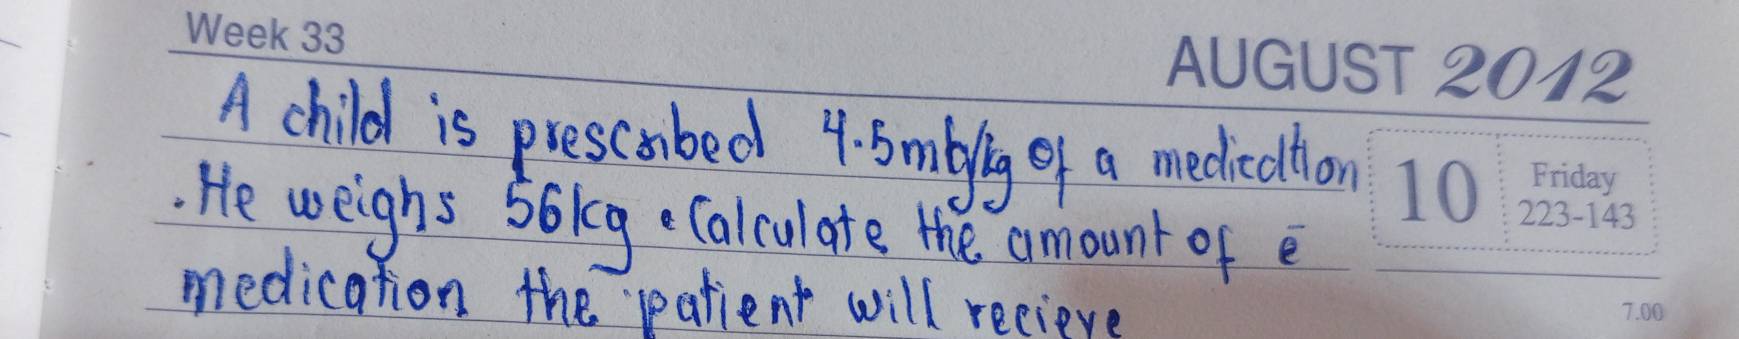 Week 33
AUGUST 2012
A child is prescribed 4.5mg/kg of a medication
10
Friday
223-143
. He weighs 56kg. Calculate the amount of ē
medication the patient will recieve
7.00